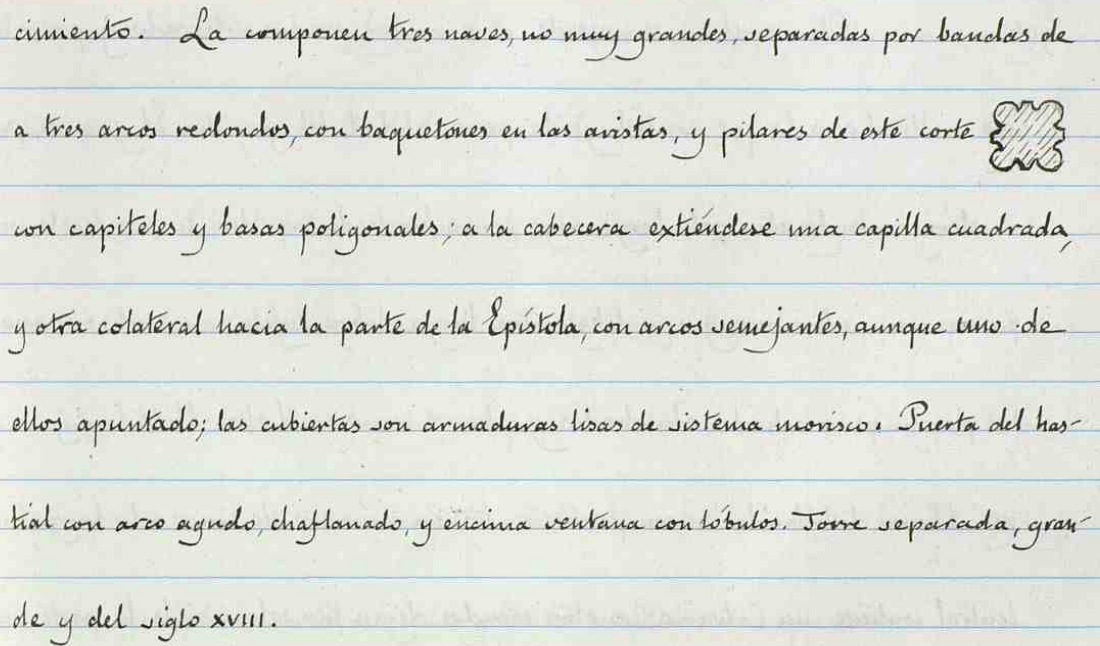 cimiento. La componen tres naves, no muy grandes, separadas por bandas de
a tres arcos redondos, con baquetones en las aristas, y pilares de este corte
con capiteles y basas poligonales; a la cabecera extiéndese una capilla cuadrada,
y otra colateral hacia la parte de la Epístola, con arcos semejantes, aunque uno de
ellos apuntado; las cubiertas son armaduras lisas de sistema morisco. Puerta del has-
tial con arco agudo, chaflanado, y encima ventana con lóbulos. Torre separada, gran-
de y del siglo XVIII.